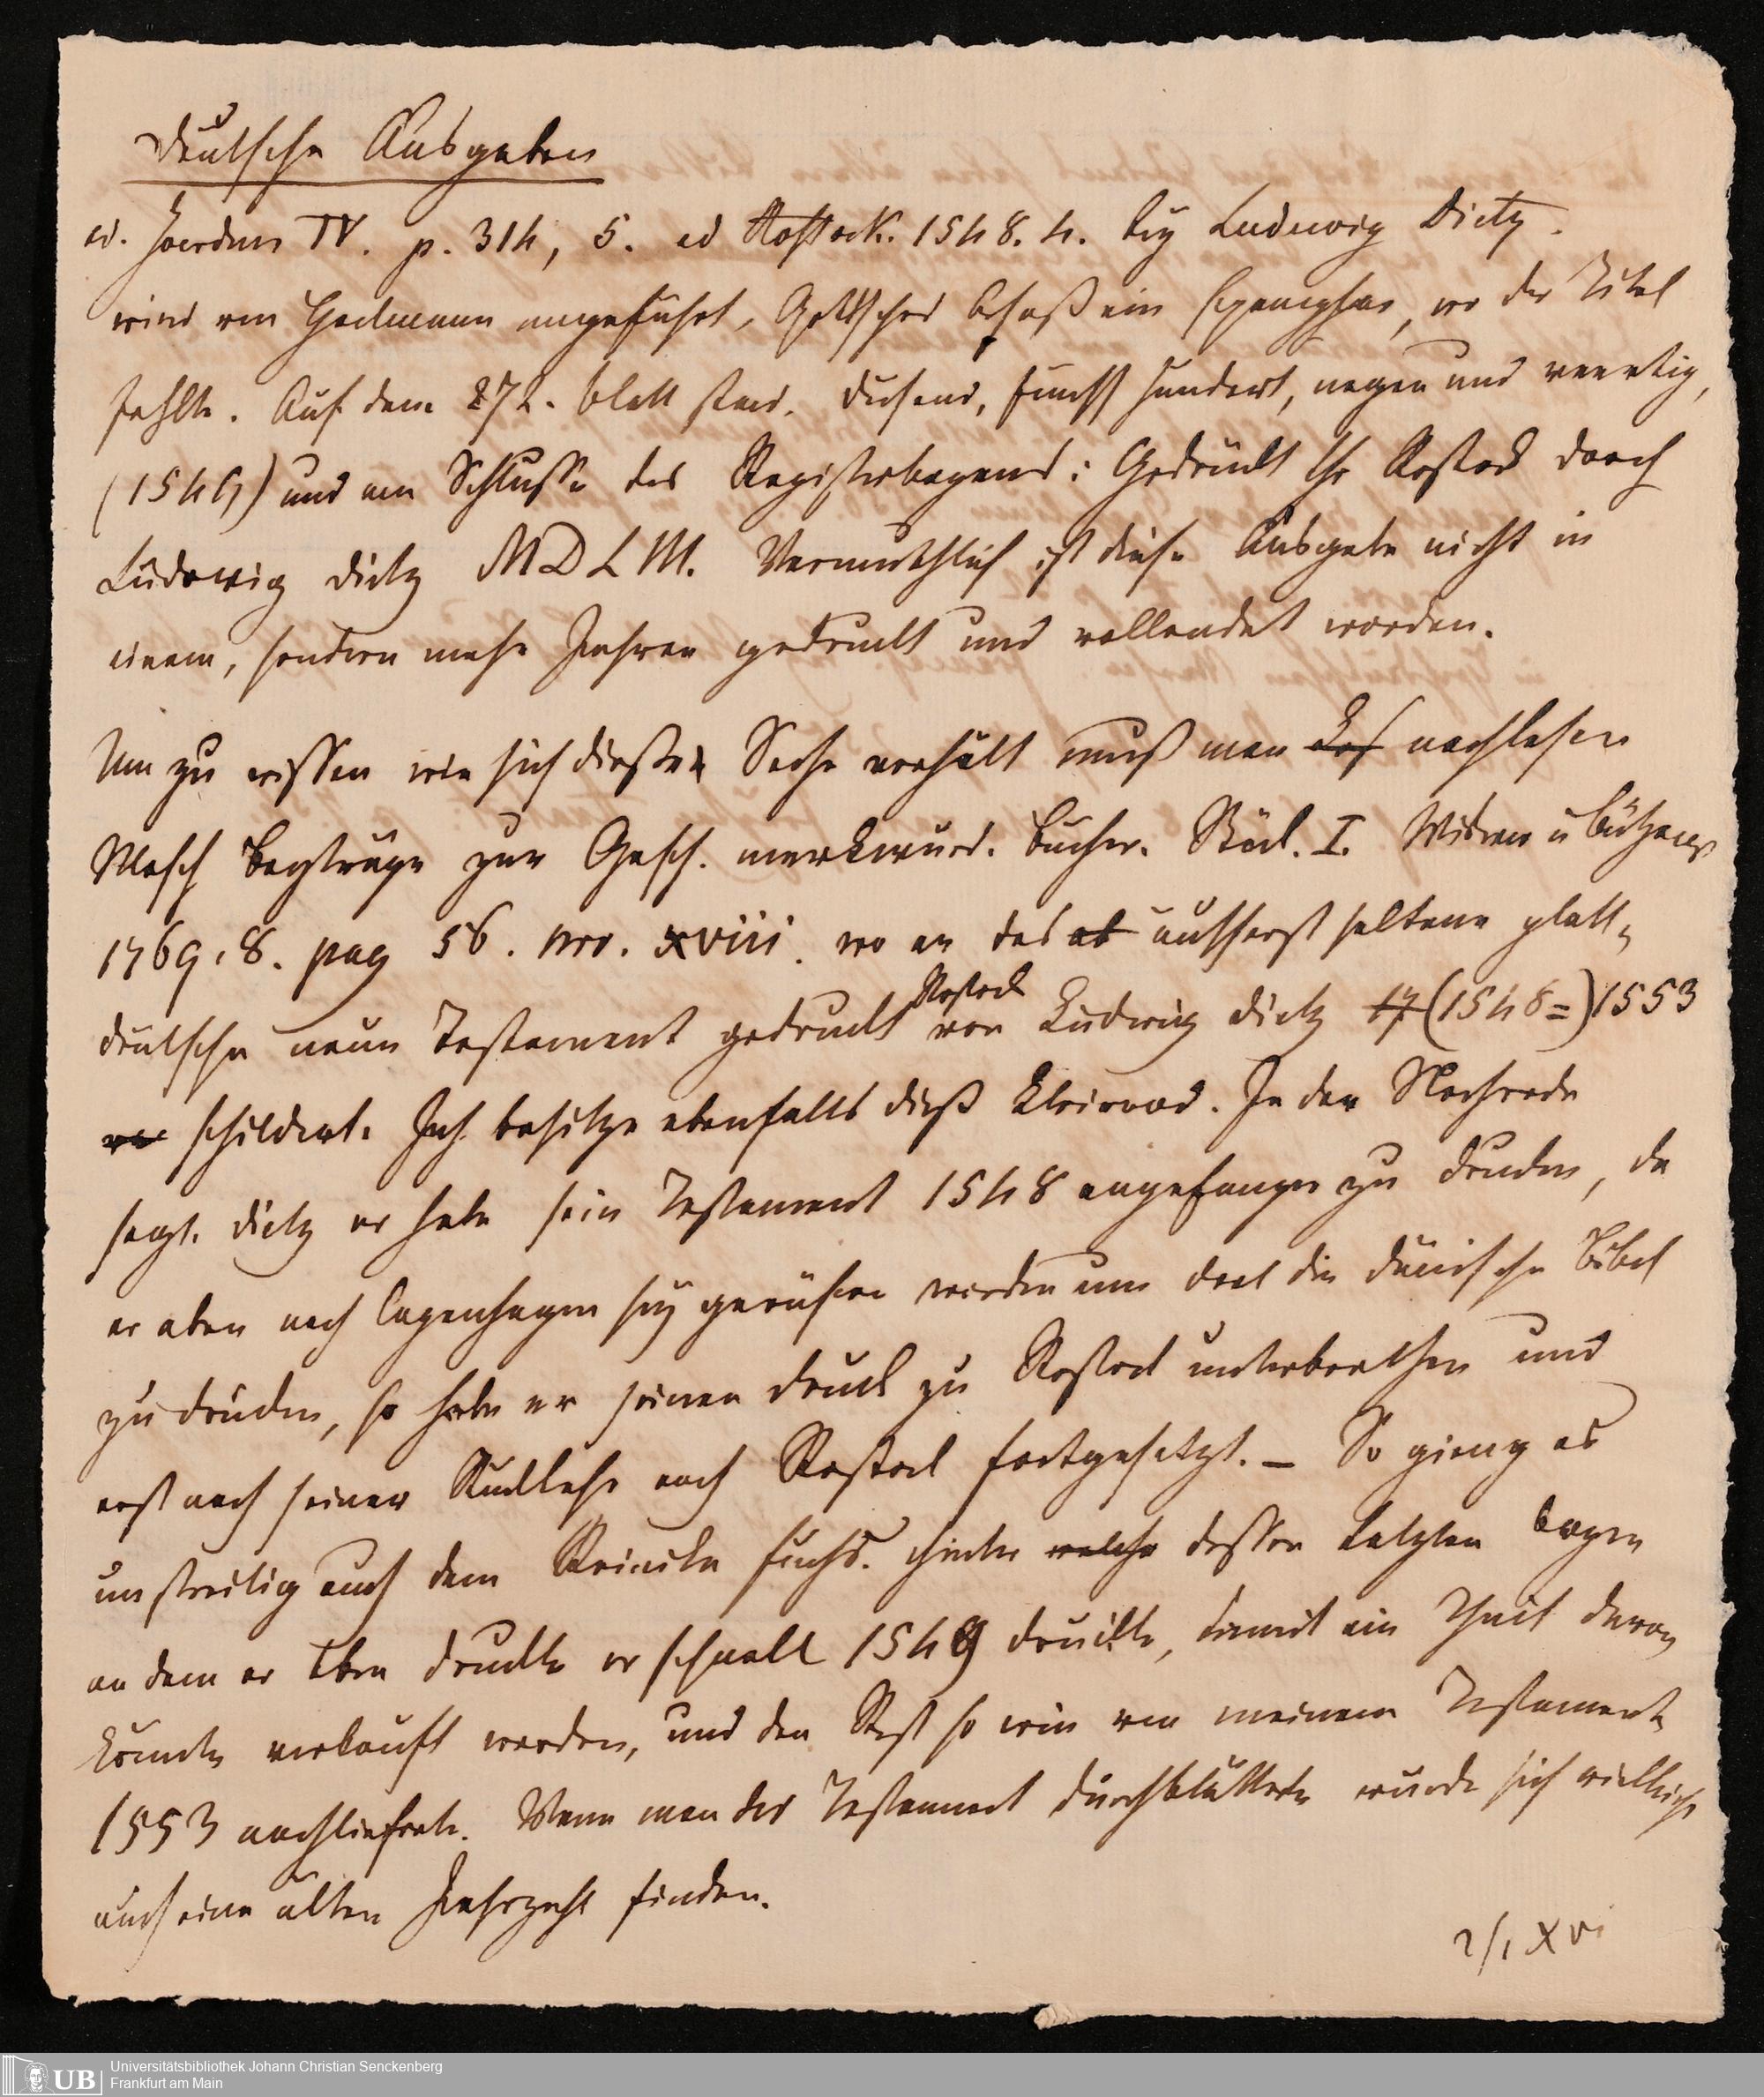 Deutsche Ausgaben
ad. Joerdens IV. p. 314, 5. ed Rostock. 1548. 4. bey Ludewig Dietz.
wird von Hackmann angeführt, Gottsched besaß ein Exemplar, wo der Titel
fehlte. Auf dem 272. Blatt stand. Dusend, Fünff hundert, negen und veertig,
(1549) und am Schlusse des Registerbogens: Gedrückt tho Rostock dorch
Ludowig Dietz MDLIII. Vermuthlich ist diese Ausgabe nicht in
einem, sondern mehr Jahren gedruckt und vollendet worden.
Um zu wissen wie sich dieße Sache verhält muß man nachlesen
Masch Beyträge zur Gesch. merkwürd. Bücher. Stück. I. Wismar u Bützow
1769. 8. pag 56. nro. XVIII. wo er das äusserst seltene platt-
deutsche neue Testament gedruckt Rostock von Ludwig Dietz (1548=)1553
schildert. Ich besitze ebenfalls dieß Kleinod. In der Nachrede
sagt. Dietz er habe sein Testament 1548 angefangen zu drucken, da
er aber nach Copenhagen sey gerufen worden um dort die dänische Bibel
zu drucken, so habe er seinen Druck zu Rostock unterbrochen und
erst nach seiner Rückkehr nach Rostock fortgesetzt. – So gieng es
unstreitig auch dem Reineke Fuchs. hinter welche dessen letzten Bogen
an dem er eben druckte er schnell 1549 druckte, damit ein Theil davon
konnte verkauft werden, und den Rest so wie von meinem Testament
1553 nachlieferte. Wenn man das Testament durchblätterte würde sich vielleicht
auch eine ältere Jahrzahl finden.
2/1 XVI
UB Universitätsbibliothek Johann Christian Senckenberg
Frankfurt am Main